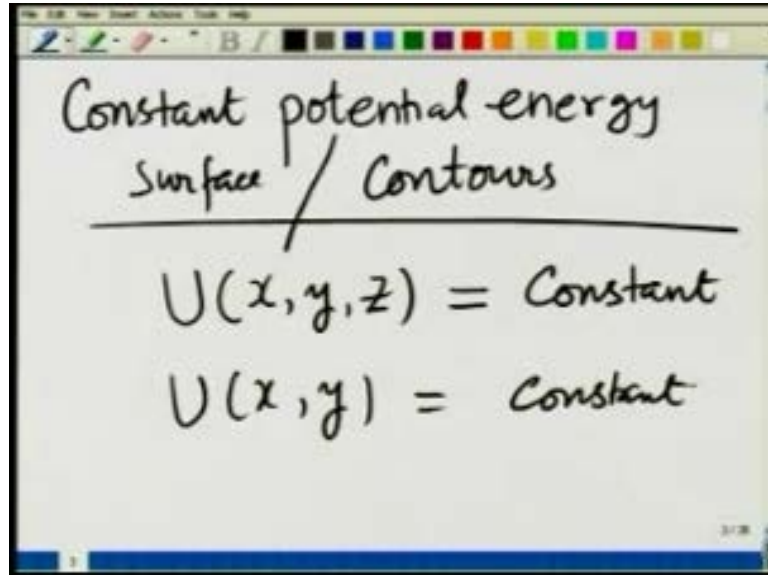 File Edit View Insert Actions Tools Help
B I
Constant potential energy
Surface / Contours
U(x, y, z) = Constant
U(x, y) = Constant